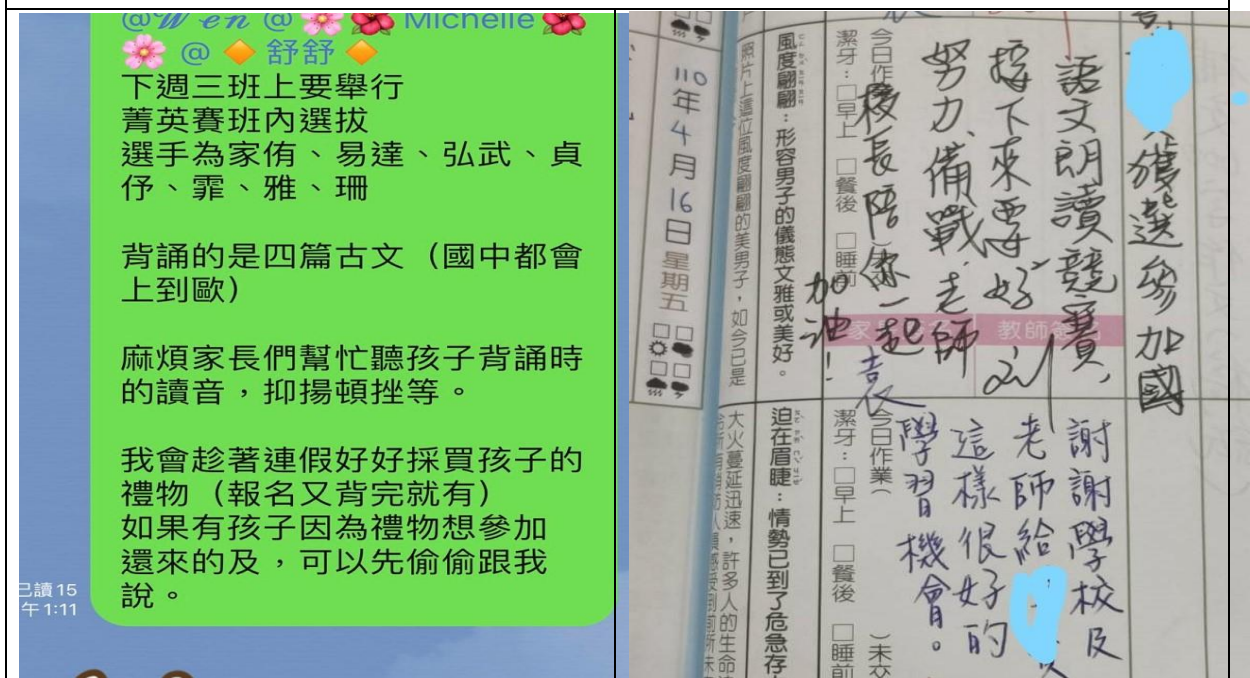 @𝒲ℯ𝓃 @🌸🌺 Michelle🌺
🌸 @🔶舒舒🔶
下週三班上要舉行
菁英賽班內選拔
選手為家侑、易達、弘武、貞
伃、霏、雅、珊
背誦的是四篇古文（國中都會
上到歐）
麻煩家長們幫忙聽孩子背誦時
的讀音，抑揚頓挫等。
我會趁著連假好好採買孩子的
禮物（報名又背完就有）
如果有孩子因為禮物想參加
還來的及，可以先偷偷跟我
說。
已讀 15
午1:11
獲選參加國
語文朗讀競賽，
接下來要好好
努力、備戰，老師
後長陪你一起
加油！
教師簽名
家
110年4月16日星期五
今日作
潔牙：□早上 □餐後 □睡前
風度翩翩：形容男子的儀態文雅或美好。
照片上這位風度翩翩的美男子，如今已是
謝謝學校及
老師給
這樣很好的
學習機會。
今日作業（
）未交
潔牙：□早上 □餐後 □睡前
迫在眉睫：情勢已到了危急存
大火蔓延迅速，許多人的生命